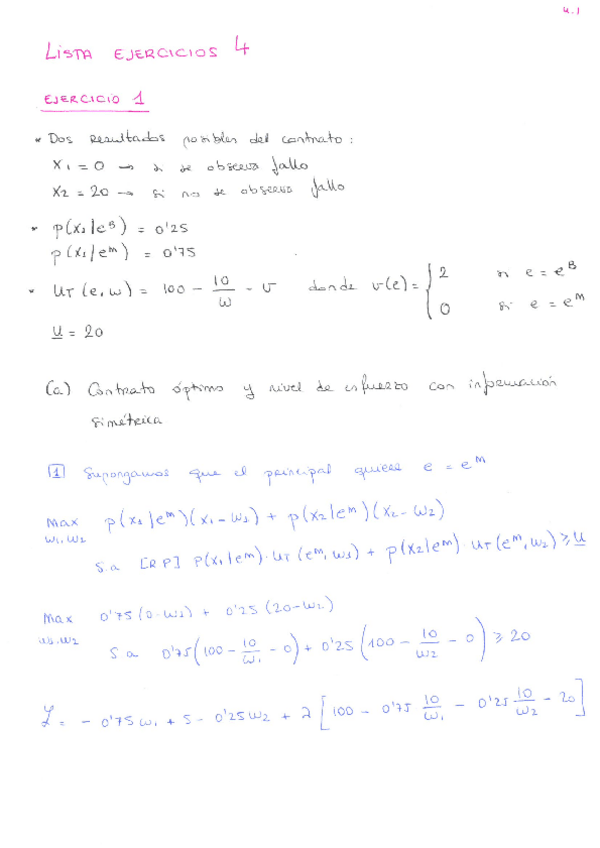 4.1
LISTA EJERCICIOS 4
EJERCICIO 1
* Dos resultados posibles del contrato :
X1 = 0 → si se observa fallo
X2 = 20 → si no se observa fallo
* p(x1/e^B) = 0'25
p(x1/e^M) = 0'75
* UT (e, w) = 100 - 10/w - v donde v(e) = { 2 si e = e^B
0 si e = e^M
U = 20
(a) Contrato óptimo y nivel de esfuerzo con información
simétrica
1 Supongamos que el principal quiere e = e^M
Max p(x1/e^M)(x1 - w1) + p(x2/e^M)(x2 - w2)
w1, w2
S.a [RP] P(x1/e^M) · UT (e^M, w1) + p(x2/e^M) · UT (e^M, w2) ≥ U
Max 0'75 (0 - w1) + 0'25 (20 - w2)
w1, w2
S.a 0'75 (100 - 10/w1 - 0) + 0'25 (100 - 10/w2 - 0) ≥ 20
L = - 0'75 w1 + 5 - 0'25 w2 + λ [100 - 0'75 10/w1 - 0'25 10/w2 - 20]